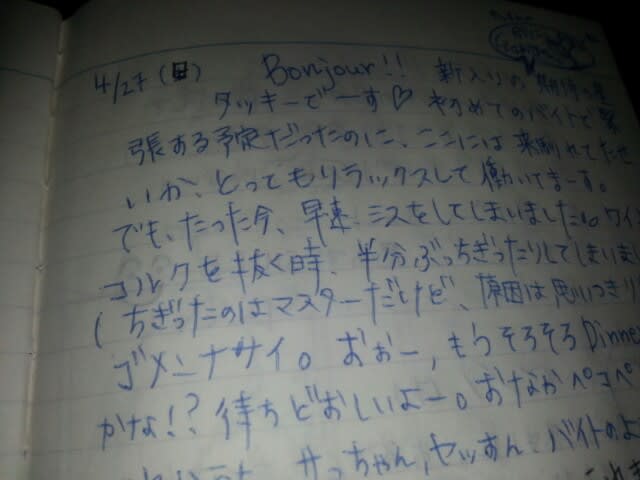 4/27 (日) Bonjour!! 新入りの
タッキーでーす♡ 初めてのバイトで緊
張する予定だったのに、ここには来慣れてたせ
いか、とってもリラックスして働いてまーす。
でも、たった今、早速ミスをしてしまいました。ワイ
コルクを抜く時、半分ぶっちぎったりしてしまいまし
(ちぎったのはマスターだけど、原因は思いっきり
ゴメンナサイ。おぉー、もうそろそろDinne
かな!? 待ちどおしいよー。おなかペコペ
サっちゃん、ヤッすん、バイトのよ